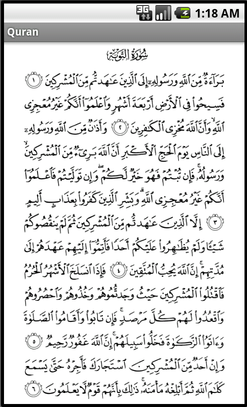 3G 1:18 AM
Quran
سُورَةُ التَّوْبَةِ
بَرَآءَةٌ مِّنَ ٱللَّهِ وَرَسُولِهِۦٓ إِلَى ٱلَّذِينَ عَٰهَدتُّم مِّنَ ٱلْمُشْرِكِينَ ١
فَسِيحُوا۟ فِى ٱلْأَرْضِ أَرْبَعَةَ أَشْهُرٍ وَٱعْلَمُوٓا۟ أَنَّكُمْ غَيْرُ مُعْجِزِى
ٱللَّهِ وَأَنَّ ٱللَّهَ مُخْزِى ٱلْكَٰفِرِينَ ٢ وَأَذَٰنٌ مِّنَ ٱللَّهِ وَرَسُولِهِۦٓ
إِلَى ٱلنَّاسِ يَوْمَ ٱلْحَجِّ ٱلْأَكْبَرِ أَنَّ ٱللَّهَ بَرِىٓءٌ مِّنَ ٱلْمُشْرِكِينَ
وَرَسُولُهُۥ فَإِن تُبْتُمْ فَهُوَ خَيْرٌ لَّكُمْ وَإِن تَوَلَّيْتُمْ فَٱعْلَمُوٓا۟
أَنَّكُمْ غَيْرُ مُعْجِزِى ٱللَّهِ وَبَشِّرِ ٱلَّذِينَ كَفَرُوا۟ بِعَذَابٍ أَلِيمٍ
٣ إِلَّا ٱلَّذِينَ عَٰهَدتُّم مِّنَ ٱلْمُشْرِكِينَ ثُمَّ لَمْ يَنقُصُوكُمْ
شَيْـًٔا وَلَمْ يُظَٰهِرُوا۟ عَلَيْكُمْ أَحَدًا فَأَتِمُّوٓا۟ إِلَيْهِمْ عَهْدَهُمْ إِلَىٰ
مُدَّتِهِمْ إِنَّ ٱللَّهَ يُحِبُّ ٱلْمُتَّقِينَ ٤ فَإِذَا ٱنسَلَخَ ٱلْأَشْهُرُ ٱلْحُرُمُ
فَٱقْتُلُوا۟ ٱلْمُشْرِكِينَ حَيْثُ وَجَدتُّمُوهُمْ وَخُذُوهُمْ وَٱحْصُرُوهُمْ
وَٱقْعُدُوا۟ لَهُمْ كُلَّ مَرْصَدٍ فَإِن تَابُوا۟ وَأَقَامُوا۟ ٱلصَّلَوٰةَ
وَءَاتَوُا۟ ٱلزَّكَوٰةَ فَخَلُّوا۟ سَبِيلَهُمْ إِنَّ ٱللَّهَ غَفُورٌ رَّحِيمٌ ٥
وَإِنْ أَحَدٌ مِّنَ ٱلْمُشْرِكِينَ ٱسْتَجَارَكَ فَأَجِرْهُ حَتَّىٰ يَسْمَعَ
كَلَٰمَ ٱللَّهِ ثُمَّ أَبْلِغْهُ مَأْمَنَهُۥ ذَٰلِكَ بِأَنَّهُمْ قَوْمٌ لَّا يَعْلَمُونَ ٦